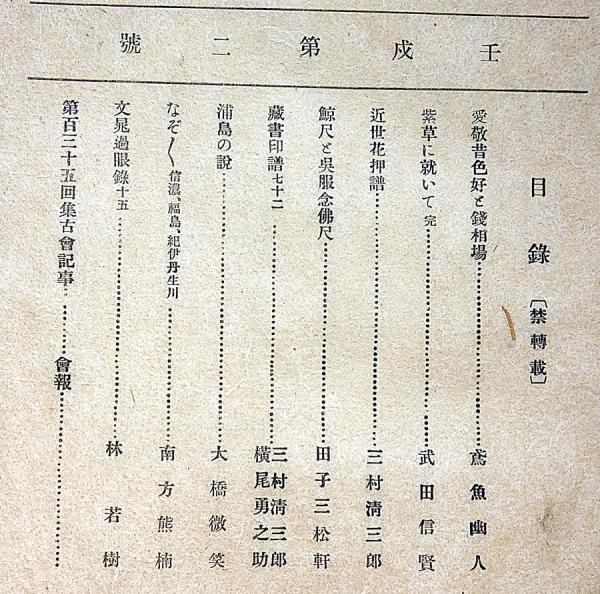 壬戌第二號
目錄〔禁轉載〕
愛敬昔色好と錢相場……鳶魚幽人
紫草に就いて 完……武田信賢
近世花押譜……三村淸三郞
鯨尺と吳服念佛尺……田子三松軒
藏書印譜七十二……三村淸三郞 橫尾勇之助
浦島の說……大橋微笑
なぞ〳〵 信濃、福島、紀伊丹生川……南方熊楠
文晁過眼錄十五……林若樹
第百三十五回集古會記事……會報……